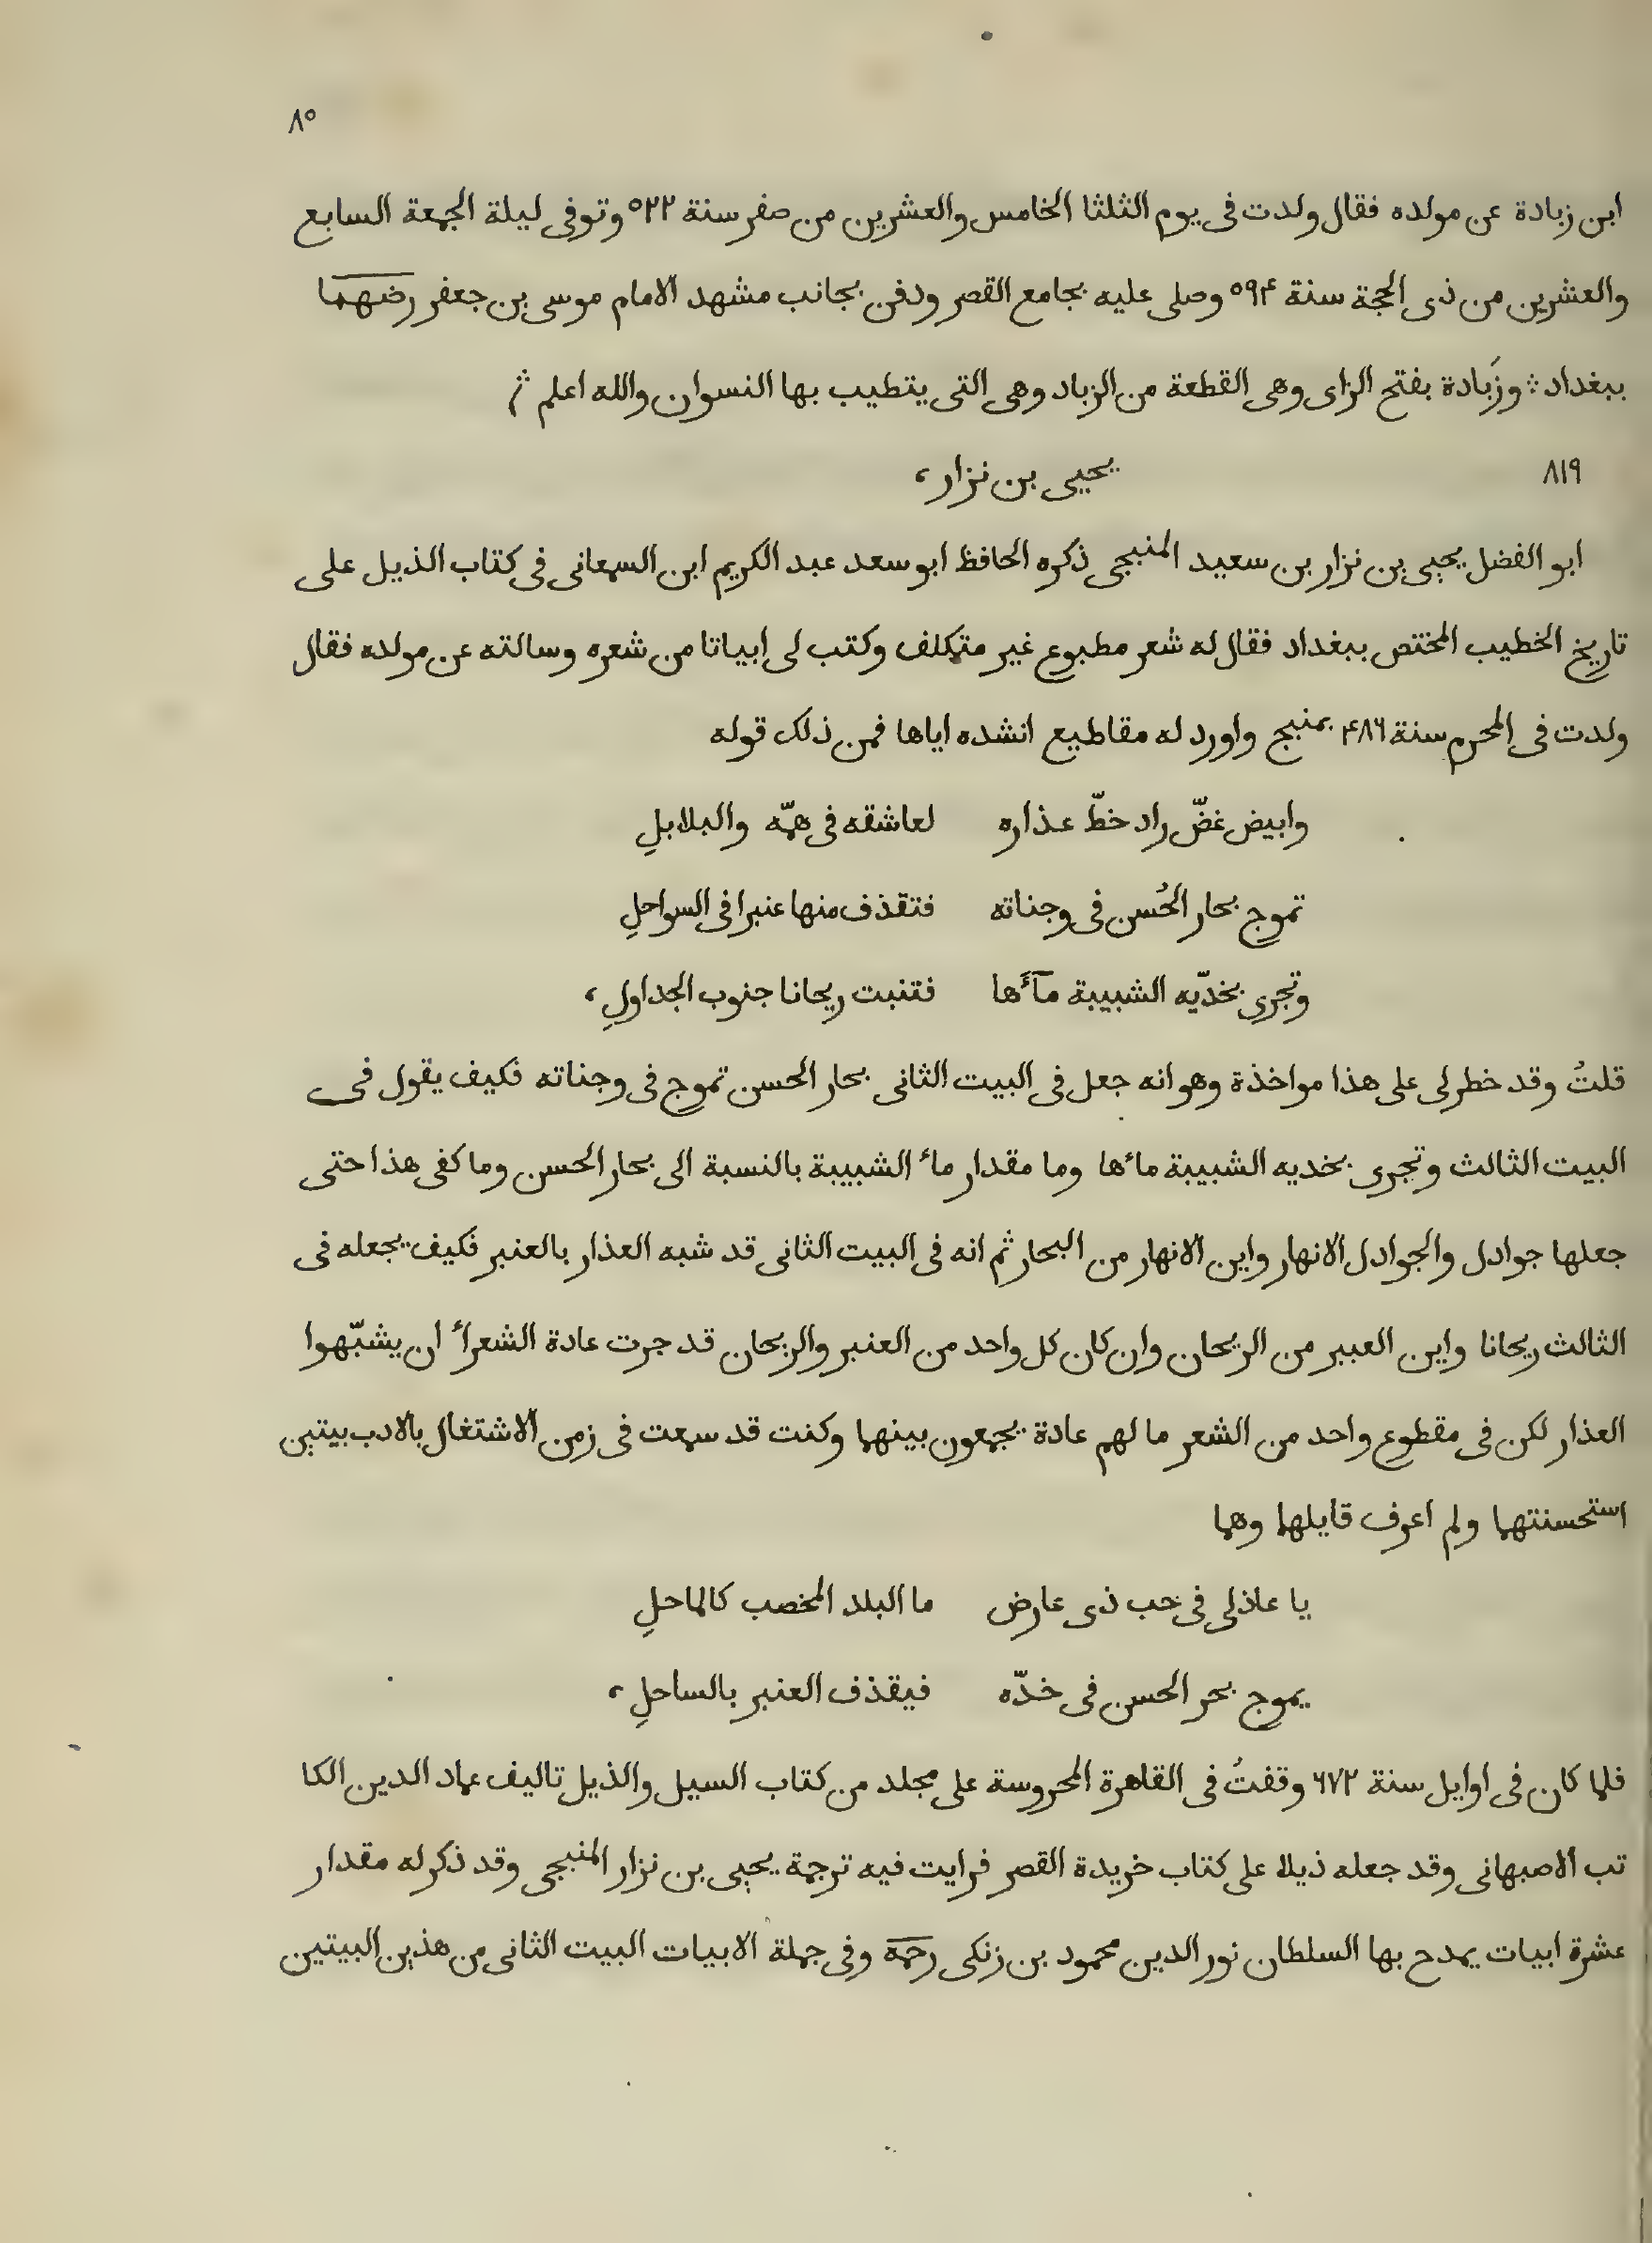 ٨٥
ابن زبادة عن مولده فقال ولدت فى يوم الثلثا الخامس والعشرين من صفر سنة ٥٢٢ وتوفى ليلة الجمعة السابع
والعشرين من ذى الحجة سنة ٥٩۴ وصلى عليه بجامع القصر ودفن بجانب مشهد الامام موسى بن جعفر رضهما
ببغداد ؞ وزَبادة بفتح الزاى وهى القطعة من الزباد وهى التى يتطيب بها النسوان والله اعلم
٨١٩ يحيى بن نزار،
ابو الفضل يحيى بن نزار بن سعيد المنبجى ذكره الحافظ ابو سعد عبد الكريم ابن السمعانى فى كتاب الذيل على
تاريخ الخطيب المختص ببغداد فقال له شعر مطبوع غير متكلف وكتب لى ابياتا من شعره وسالته عن مولده فقال
ولدت فى المحرم سنة ۴٨٦ بمنبج واورد له مقاطيع انشده اياها فمن ذلك قوله
وابيض غضّ راد خطّ عذاره لعاشقه فى همّه والبلابلِ
تموج بحار الحُسن فى وجناته فتقذف منها عنبرا فى السواحلِ
وتجرى بخدّيه الشبيبة مآءَها فتنبت ريحانا جنوب الجداولِ،
قلتُ وقد خطر لى على هذا مواخذة وهو انه جعل فى البيت الثانى بحار الحسن تموج فى وجناته فكيف يقول فى
البيت الثالث وتجرى بخديه الشبيبة ماءها وما مقدار ماء الشبيبة بالنسبة الى بحار الحسن وما كفى هذا حتى
جعلها جوادل والجوادل الانهار واين الانهار من البحار ثم انه فى البيت الثانى قد شبه العذار بالعنبر فكيف يجعله فى
الثالث ريحانا واين العبير من الريحان وان كان كل واحد من العنبر والريحان قد جرت عادة الشعراء ان يشبّهوا
العذار لكن فى مقطوع واحد من الشعر ما لهم عادة يجمعون بينهما وكنت قد سمعت فى زمن الاشتغال بالادب بيتين
استحسنتهما ولم اعرف قايلهما وهما
يا عاذلى فى حب ذى عارض ما البلد المخصب كالماحلِ
يموج بحر الحسن فى خدّه فيقذف العنبر بالساحلِ،
فلما كان فى اوايل سنة ٦٧٢ وقفتُ فى القاهرة المحروسة على مجلد من كتاب السيل والذيل تاليف عماد الدين الكا
تب الاصبهانى وقد جعله ذيلا على كتاب خريدة القصر فرايت فيه ترجمة يحيى بن نزار المنبجى وقد ذكر له مقدار
عشرة ابيات يمدح بها السلطان نور الدين محمود بن زنكى رحمه وفى جملة الابيات البيت الثانى من هذين البيتين